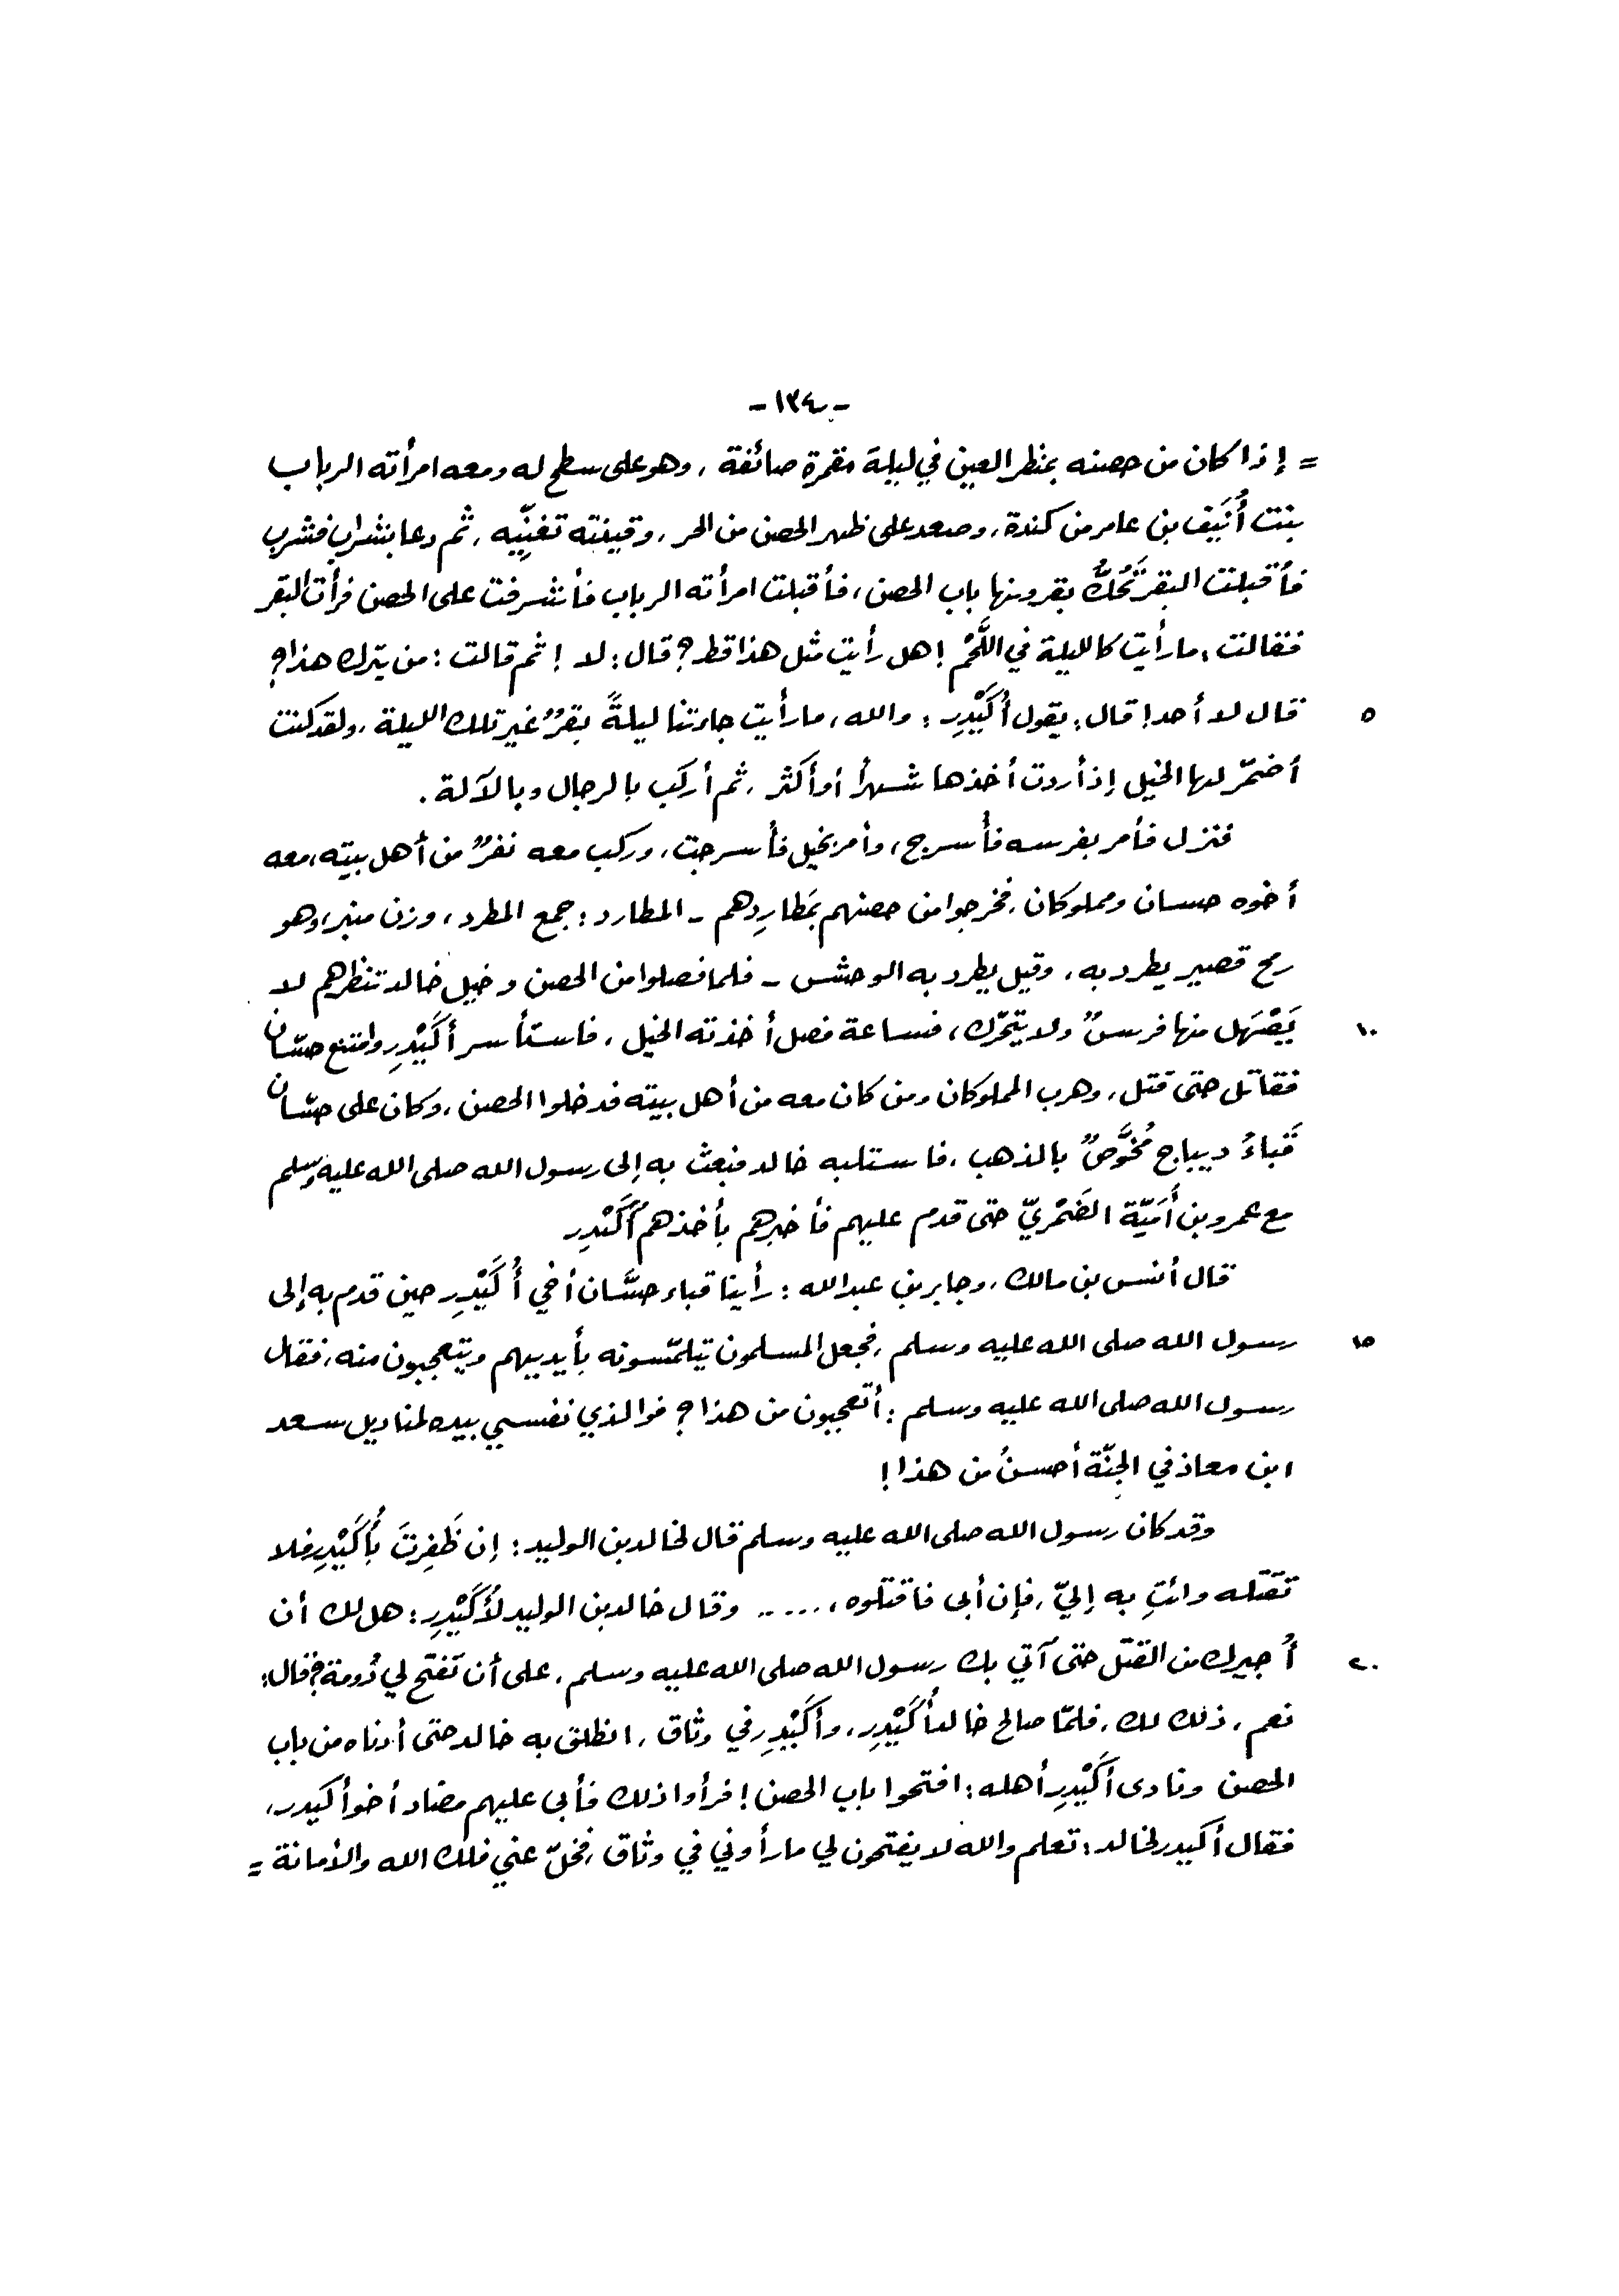 -١٣٤-
= إذا كان من حصنه بمنظر العين في ليلة مقمرة صائفة، وهو على سطح له ومعه امرأته الرباب
بنت أُنَيف بن عامر من كندة، وصعد على ظهر الحصن من الحر، وقينته تغنّيه، ثم دعا بشراب فشرب
فأقبلت البقر تَحُكُّ بقرونها باب الحصن، فأقبلت امرأته الرباب فأشرفت على الحصن فرأت البقر
فقالت: ما رأيت كالليلة في اللَّحْم! هل رأيت مثل هذا قط؟ قال: لا! ثم قالت: من يترك هذا؟
٥ قال لا أحد! قال: يقول أُكَيْدِر: والله، ما رأيت جاءتنا ليلةً بقرٌ غير تلك الليلة، ولقد كنت
أضمّر لها الخيل إذ أردت أخذها شهراً أو أكثر، ثم أركب بالرجال وبالآلة.
فنزل فأمر بفرسه فأُسرج، وأمر بخيل فأسرجت، وركب معه نفرٌ من أهل بيته، معه
أخوه حسان ومملوكان، فخرجوا من حصنهم بمَطارِدِهم - المطارد: جمع المطرد، وزن منبر، وهو
رمح قصير يطرد به، وقيل يطرد به الوحش - فلما فصلوا من الحصن وخيل خالد تنظرهم لا
١٠ يَصْهَل منها فرسٌ ولا يتحرّك، فساعة فصل أخذته الخيل، فاستأسر أُكَيْدِر وامتنع حسّان
فقاتل حتى قتل، وهرب المملوكان ومن كان معه من أهل بيته فدخلوا الحصن، وكان على حسّان
قَباءُ ديباج مُخَوَّصٌ بالذهب، فاستلبه خالد فبعث به إلى رسول الله صلى الله عليه وسلم
مع عمرو بن أُمَيّة الضَمْريّ حتى قدم عليهم فأخبرهم بأخذهم أُكَيْدِر
قال أنس بن مالك، وجابر بن عبدالله: رأينا قباء حسَّان أخي أُكَيْدِر حين قدم به إلى
١٥ رسول الله صلى الله عليه وسلم، فجعل المسلمون يتلمّسونه بأيديهم ويتعجبون منه، فقال
رسول الله صلى الله عليه وسلم: أتعجبون من هذا؟ فوالذي نفسي بيده لمناديل سعد
ابن معاذ في الجنّة أحسنُ من هذا!
وقد كان رسول الله صلى الله عليه وسلم قال لخالد بن الوليد: إن ظَفِرتَ بأُكَيْدِر فلا
تقتله وائتِ به إليّ، فإن أبى فاقتلوه، ..... وقال خالد بن الوليد لأُكَيْدِر: هل لك أن
٢٠ أُجيرك من القتل حتى آتي بك رسول الله صلى الله عليه وسلم، على أن تفتح لي دُومة؟ قال:
نعم، ذلك لك، فلمّا صالح خالد أُكَيْدِر، وأُكَيْدِر في وثاق، انطلق به خالد حتى أدناه من باب
الحصن ونادى أُكَيْدِر أهله: افتحوا باب الحصن! فرأوا ذلك فأبى عليهم مضاد أخو أكيدر،
فقال أكيدر لخالد: تعلم والله لا يفتحون لي ما رأوني في وثاق، فخلّ عني فلك الله والأمانة =